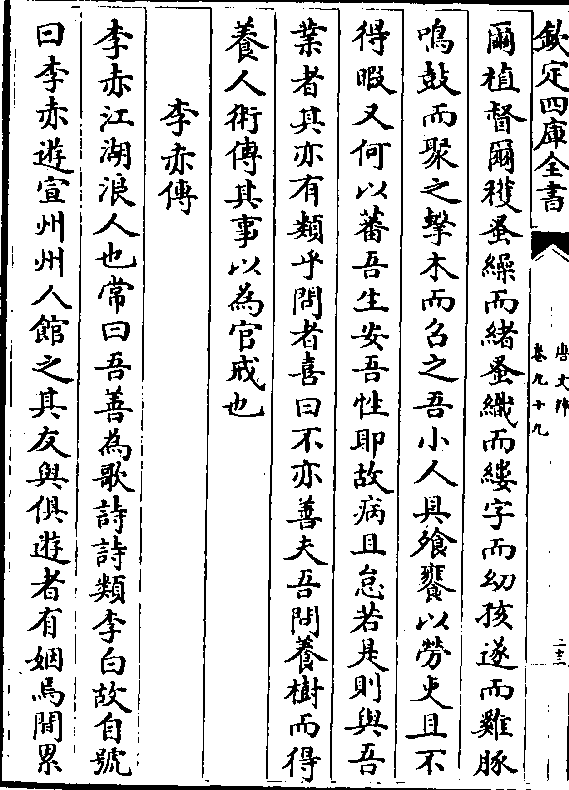 欽定四庫全書
唐文粹
卷九十九
二十三
爾植督爾穫蚤繰而緒蚤織而縷字而幼孩遂而雞豚
鳴鼓而聚之擊木而召之吾小人具飧饔以勞吏且不
得暇又何以蕃吾生安吾性耶故病且怠若是則與吾
業者其亦有類乎問者喜曰不亦善夫吾問養樹而得
養人術傳其事以為官戒也
李赤傳
李赤江湖浪人也常曰吾善為歌詩詩類李白故自號
曰李赤遊宣州州人館之其友與俱遊者有姻焉間累